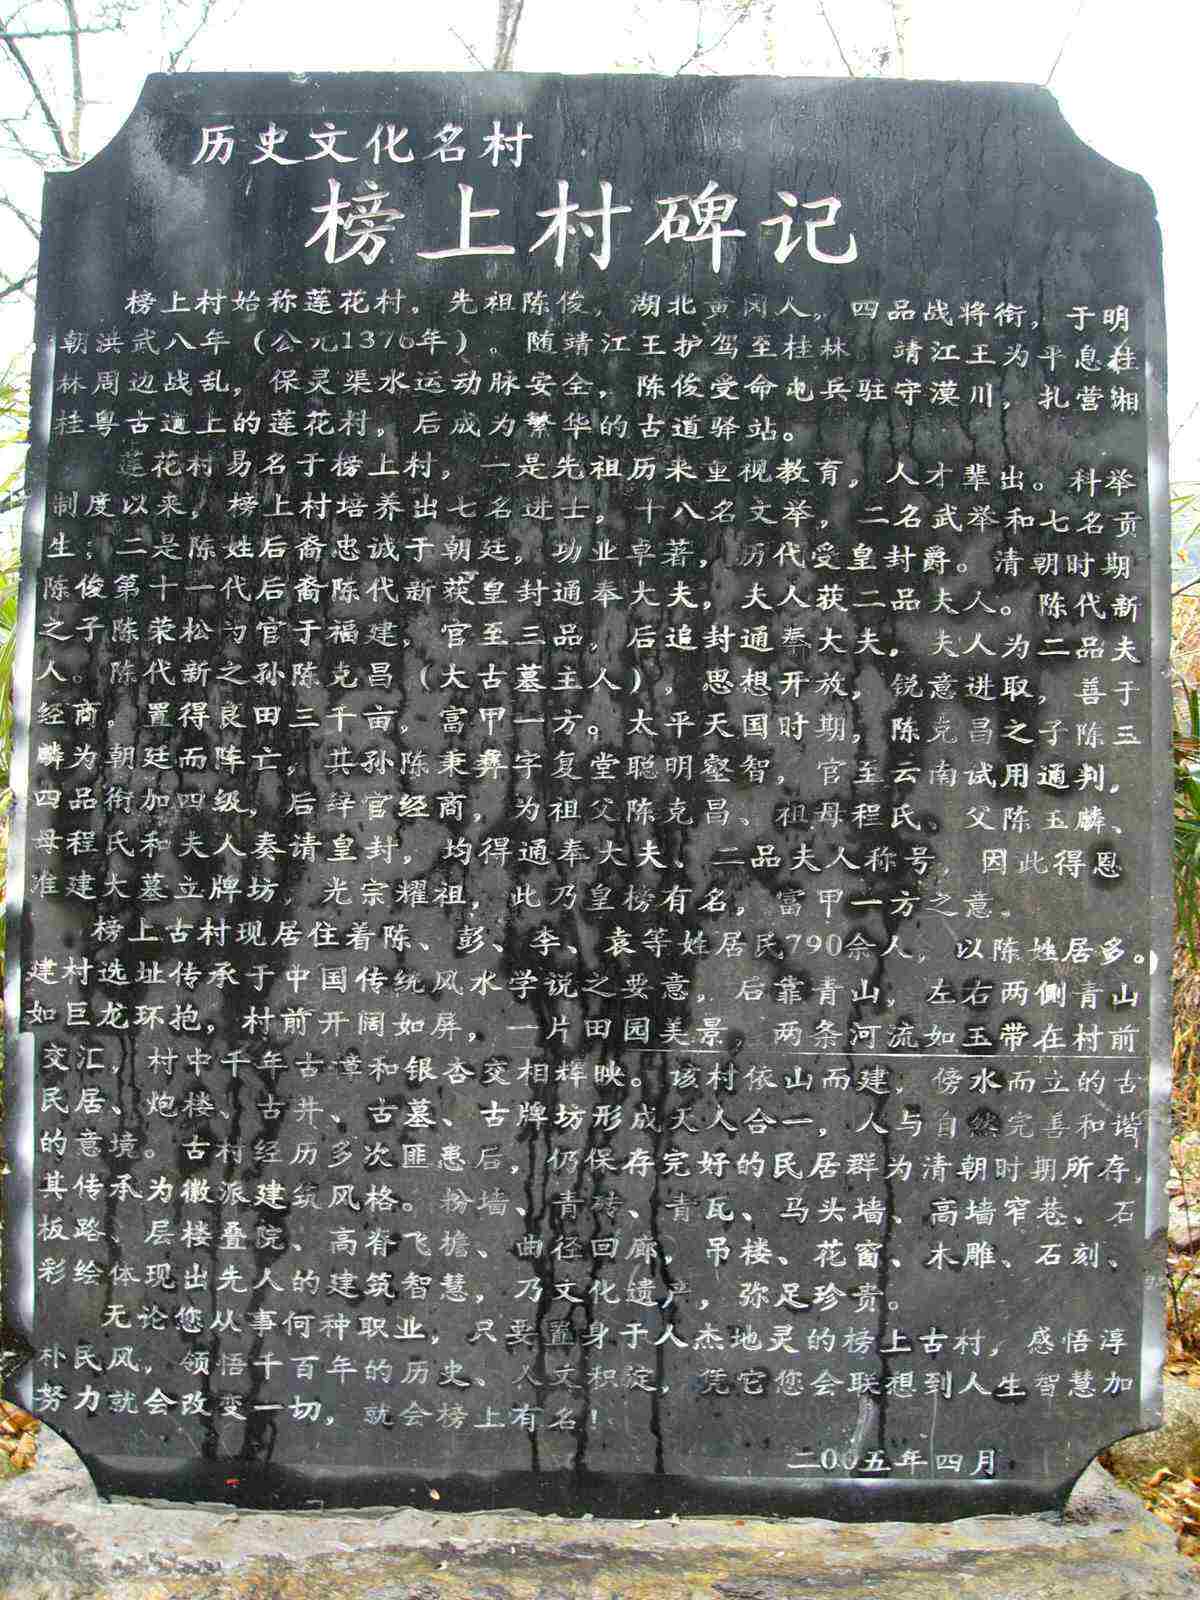 历史文化名村
榜上村碑记
榜上村始称莲花村。先祖陈俊，湖北黄冈人，四品战将衔，于明
朝洪武八年（公元1376年）。随靖江王护驾至桂林。靖江王为平息桂
林周边战乱，保灵渠水运动脉安全，陈俊受命屯兵驻守漠川，扎营湘
桂粤古道上的莲花村，后成为繁华的古道驿站。
莲花村易名于榜上村，一是先祖历来重视教育，人才辈出。科举
制度以来，榜上村培养出七名进士，十八名文举，二名武举和七名贡
生；二是陈姓后裔忠诚于朝廷，功业卓著，历代受皇封爵。清朝时期
陈俊第十一代后裔陈代新获皇封通奉大夫，夫人获二品夫人。陈代新
之子陈荣松为官于福建，官至三品，后追封通奉大夫，夫人为二品夫
人。陈代新之孙陈克昌（大古墓主人），思想开放，锐意进取，善于
经商。置得良田三千亩，富甲一方。太平天国时期，陈克昌之子陈玉
麟为朝廷而阵亡，其孙陈秉彝字复堂聪明睿智，官至云南试用通判，
四品衔加四级，后辞官经商，为祖父陈克昌、祖母程氏、父陈玉麟、
母程氏和夫人奏请皇封，均得通奉大夫、二品夫人称号，因此得恩
准建大墓立牌坊，光宗耀祖，此乃皇榜有名，富甲一方之意。
榜上古村现居住着陈、彭、李、袁等姓居民790余人，以陈姓居多。
建村选址传承于中国传统风水学说之要意，后靠青山，左右两侧青山
如巨龙环抱，村前开阔如屏，一片田园美景，两条河流如玉带在村前
交汇，村中千年古樟和银杏交相辉映。该村依山而建，傍水而立的古
民居、炮楼、古井、古墓、古牌坊形成天人合一，人与自然完善和谐
的意境。古村经历多次匪患后，仍保存完好的民居群为清朝时期所存，
其传承为徽派建筑风格。粉墙、青砖、青瓦、马头墙、高墙窄巷、石
板路、层楼叠院、高脊飞檐、曲径回廊，吊楼、花窗、木雕、石刻、
彩绘体现出先人的建筑智慧，乃文化遗产，弥足珍贵。
无论您从事何种职业，只要置身于人杰地灵的榜上古村，感悟淳
朴民风，领悟千百年的历史、人文积淀，凭它您会联想到人生智慧加
努力就会改变一切，就会榜上有名！
二00五年四月